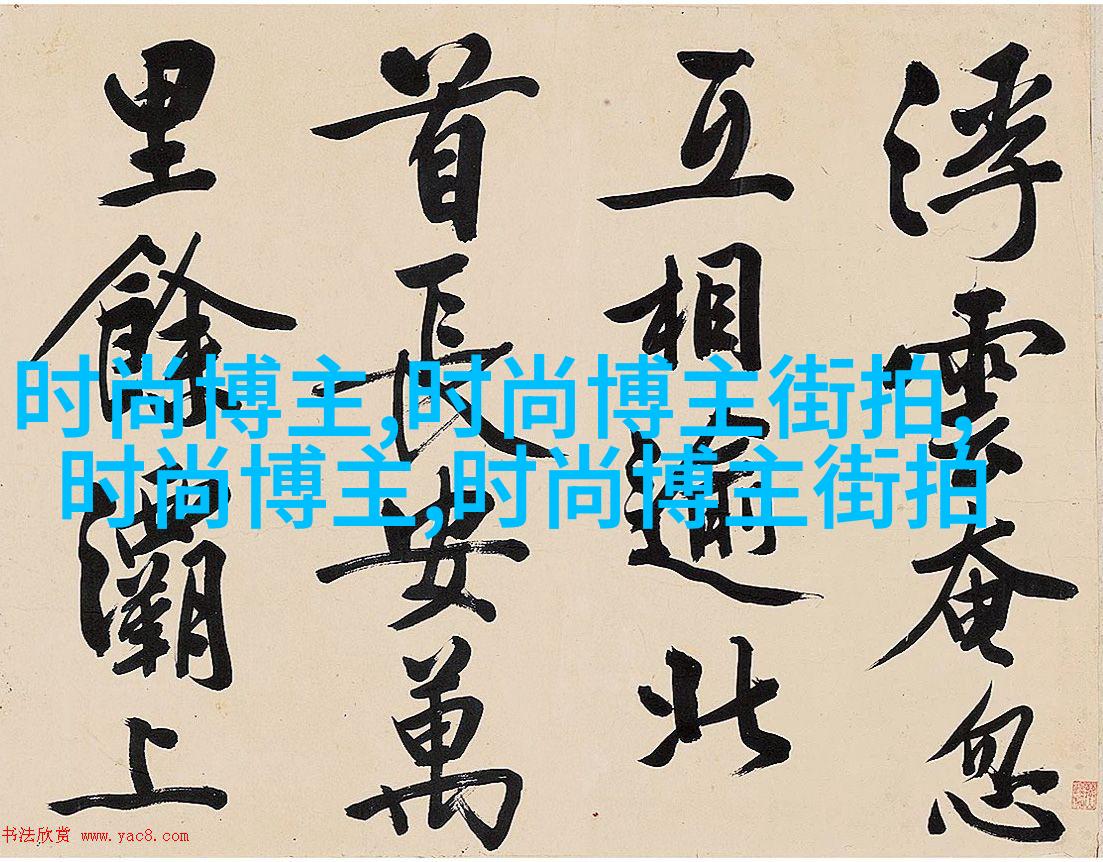 浮雲奄忽
互相逾北
首長安萬
里餘灞上
时尚博主,时尚博主街拍,
时尚博主,时尚博主街拍
书法欣赏 www.yac8.com